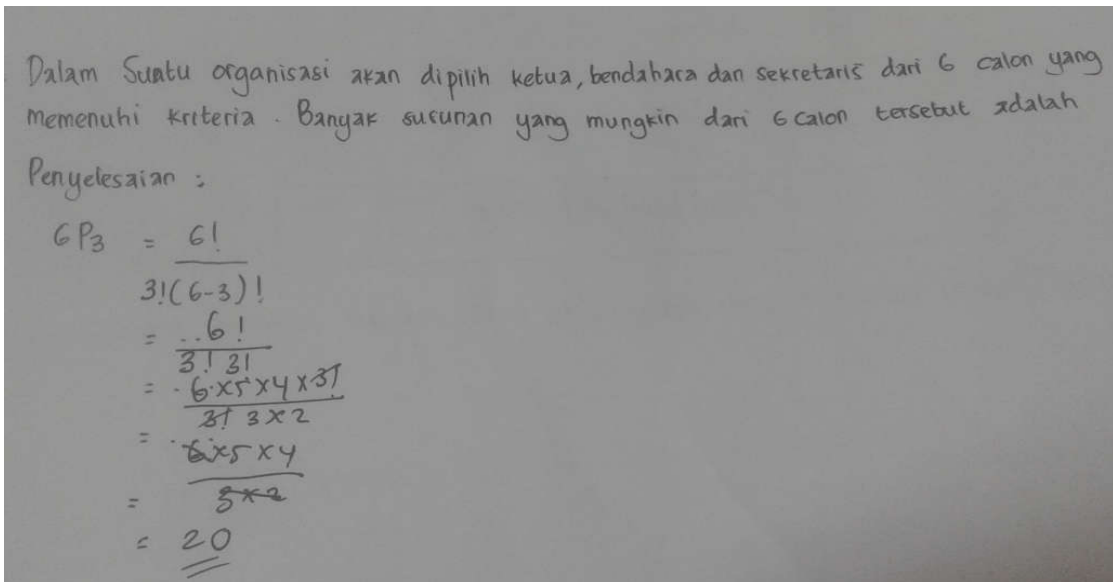 Dalam Suatu organisasi akan dipilih ketua, bendahara dan sekretaris dari 6 calon yang
memenuhi kriteria. Banyak susunan yang mungkin dari 6 calon tersebut adalah
Penyelesaian :
6P3 = 6!
3!(6-3)!
= ..6!
3! 3!
= . 6×5×4×3!
3! 3×2
= . 6×5×4
3×2
=
= 20